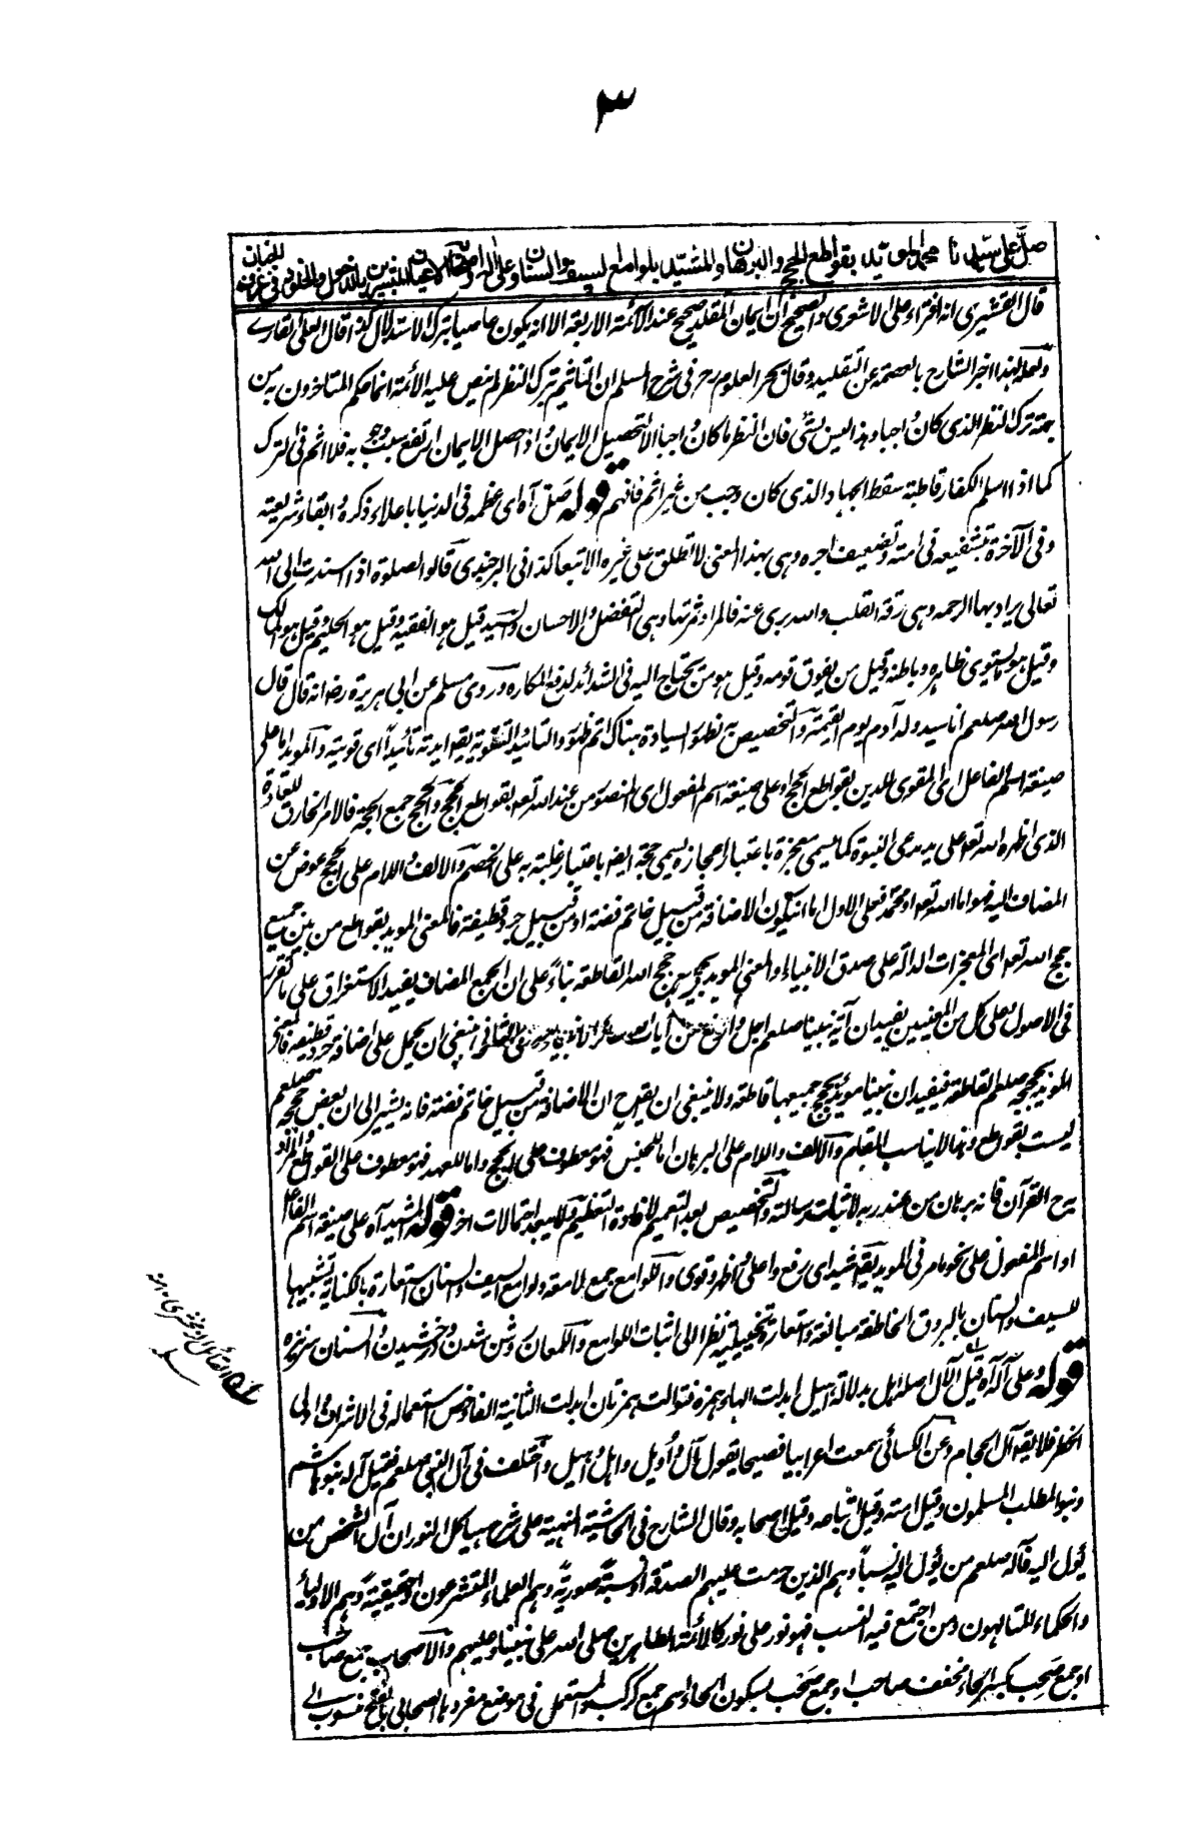 ٣
صل على سيدنا محمد المؤيد بقواطع الحجج والبرهان والمشيد بلوامع السيف والسنان وعلى آله واصحابه
قال القشيرى انه افتراء على الاشعرى والصحيح ان ايمان المقلد صحيح عند الائمة الاربعة الا انه يكون عاصيا بترك الاستدلال كذا قال العلى القارے
ولعله لهذا اخبر الشارح بالعصمة عن التقليد وقال بحر العلوم رح فى شرح المسلم ان التاثيم بترك النظر لم ينص عليه الأئمة انما حكم المتاخرون به من
جهة ترك النظر الذى كان واجبا وهذا ليس بشئ فان النظر ما كان واجبا الا لتحصيل الايمان واذ حصل الايمان ارتفع سبب وجوبه فلا اثم فى الترك
كما اذا اسلم الكفار قاطبة سقط الجهاد الذى كان وجب من غير اثم فافهم قوله صل آه اى عظمه فى الدنيا باعلاء ذكره وابقاء شريعته
وفى الآخرة بتشفيعه فى امته وتضعيف اجره وهى بهذا المعنى لا تطلق على غيره الا تبعا كذا فى البرجندى قالوا الصلوة اذا اسندت الى الله
تعالى يراد بها الرحمة وهى رقة القلب والله برى عنه فالمراد ثمرتها وهى التفضل والاحسان والسيد قيل هو الفقيه وقيل هو الحليم وقيل هو المالك
وقيل هو لمستوى ظاهره وباطنه وقيل من يفوق قومه وقيل هو من يحتاج اليه فى الشدائد لدفع المكاره وروى مسلم عن ابى هريرة رضه انه قال قال
رسول الله صلعم انا سيد ولد آدم يوم القيمة والتخصيص به لظهور السيادة هناك اتم ظهور والتائيد التقوية يقه ايدته تائيدا اى قويته والمويد اما على
صيغة اسم الفاعل اى المقوى للدين بقواطع الحجج او على صيغة اسم المفعول اى المنصور من عند الله تعه بقواطع الحجج والحجج جمع الحجة فالامر الخارق للعادة
الذى اظهره الله تعه على يد مدعى النبوة كما يسمى معجزة باعتبار اعجازه يسمى حجة ايضه باعتبار غلبته به على الخصم والالف واللام على الحجج عوض عن
المضاف اليه فهو اما الله تعه او محمد فعلى الاول اما ان يكون الاضافة من قبيل خاتم فضة او من قبيل جرد قطيفة فالمعنى المويد بقواطع من بين جميع
حجج الله تعه اى المعجزات الدالة على صدق الانبياء او المعنى المويد بجميع حجج الله القاطعة بناء على ان الجمع المضاف يفيد الاستغراق على ما تقرر
فى الاصول وعلى كل من المعنيين يفيد ان آية نبينا صلعم اجل وارفع من آيات سائر الانبياء وعلى الثانى ينبغى ان يحمل على اضافة جرد قطيفة فالمعنى
المويد بحججه صلعم القاطعة فيفيد ان نبينا مويد بحجج جميعها قاطعة ولا ينبغى ان يقه ح ان الاضافة من قبيل خاتم فضة فانه يشير الى ان بعض حججه صلعم
ليست بقواطع وهذا لا يناسب المقام والالف واللام على البرهان اما للجنس فهو معطوف على الحجج واما للعهد فهو معطوف على القواطع والمراد
به ح القرآن فانه برهان من عند ربه لاثبات رسالته والتخصيص بعد التعميم لافادة التعظيم فلا يبعد احتمالات اخر قوله المشيد آه على صيغة اسم الفاعل
او اسم المفعول على نحو ما مر فى المويد يقه شيد اى رفع واعلى واظهر وقوى واللوامع جمع لامعة ولوامع السيف والسنان استعارة بالكناية لتشبيهها
للسيف والسنان بالبروق الخاطفة مبالغة واستعارة تخييلية نظرا الى اثبات اللوامع واللمعان روشن شدن ودرخشيدن والسنان سر نيزه
قوله وعلى آله آه قيل الآل اصله اهل بدلالة اهيل ابدلت الهاء همزة فتوالت همزتان ابدلت الثانية الفا وخص استعماله فى الاشراف واولى
الخطر فلا يقه آل الحجام وعن الكسائى سمعت اعرابيا فصيحا يقول آل واويل واهل واهيل واختلف فى آل النبى صلعم فقيل آله بنو هاشم
وبنو المطلب المسلمون وقيل امته وقيل اتباعه وقيل اصحابه وقال الشارح فى الحاشية المنهية على شرح هياكل النور ان آل الشخص من
يؤل اليه فآله صلعم من يؤل اليه نسبا وهم الذين حرمت عليهم الصدقة او نسبة صورية وهم العلماء المتشرعون او حقيقية وهم الاولياء
والحكماء المتالهون ومن اجتمع فيه النسب فهو نور على نور كالائمة الطاهرين صلى الله على نبينا وعليهم والاصحاب جمع صاحب
او جمع صحب بكسر الحاء مخفف صاحب او جمع صحب بسكون الحاء اسم جمع كركب والمستعمل فى موضع مفردها الصحابى بالفتح منسوب الى